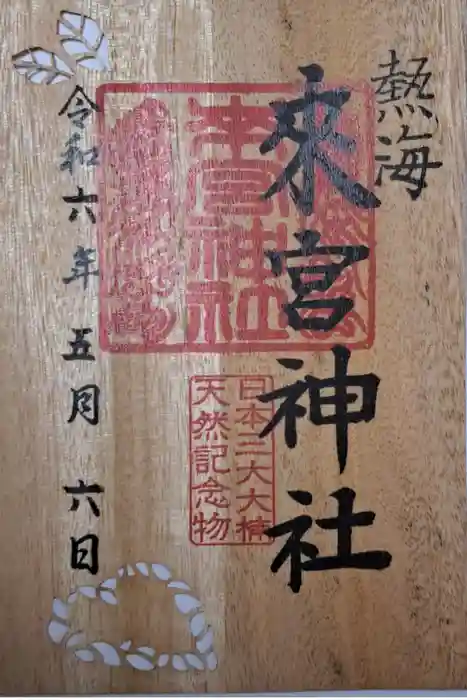 熱海
來宮神社
来宮神社
日本三大大楠
天然記念物
令和六年五月六日